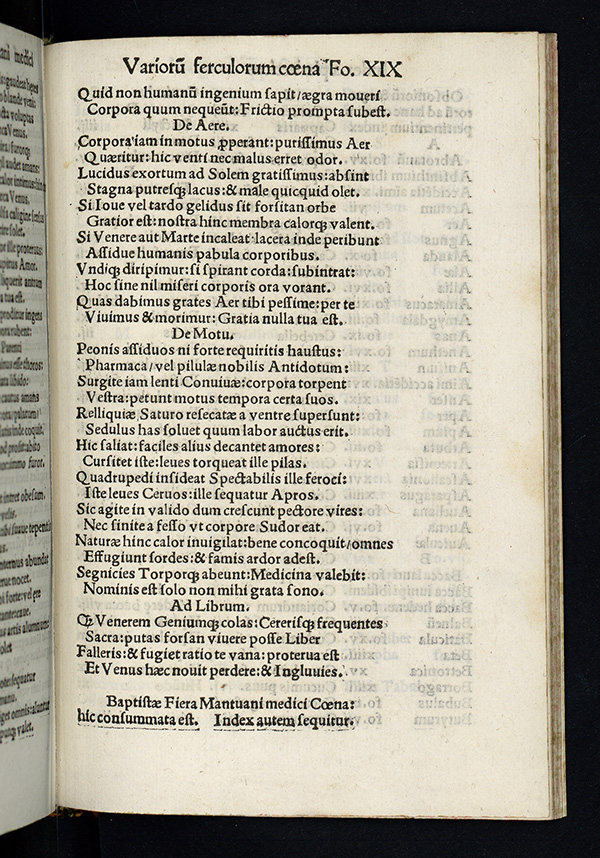 Variorū ferculorum cœna Fo. XIX
Quid non humanū ingenium sapit/ægra moueri
Corpora quum nequeūt: Frictio prompta subest.
De Aere.
Corpora iam in motus ꝓperant: purissimus Aer
Quæritur: hic venti nec malus erret odor.
Lucidus exortum ad Solem gratissimus: absint
Stagna putresqꝫ lacus: & male quicquid olet.
Si Ioue vel tardo gelidus sit forsitan orbe
Gratior est: nostra hinc membra calorqꝫ valent.
Si Venere aut Marte incaleat lacera inde peribunt
Assidue humanis pabula corporibus.
Vndiqꝫ diripimur: si spirant corda: subintrat:
Hoc sine nil miseri corporis ora vorant.
Quas dabimus grates Aer tibi pessime: per te
Viuimus & morimur: Gratia nulla tua est.
De Motu.
Peonis assiduos ni forte requiritis haustus:
Pharmaca/vel pilulæ nobilis Antidotum:
Surgite iam lenti Conuiuæ: corpora torpent
Vestra: petunt motus tempora certa suos.
Relliquiæ Saturo resecatæ a ventre supersunt:
Sedulus has soluet quum labor auctus erit.
Hic saliat: faciles alius decantet amores:
Cursitet iste: leues torqueat ille pilas.
Quadrupedi insideat Spectabilis ille feroci:
Iste leues Ceruos: ille sequatur Apros.
Sic agite in valido dum crescunt pectore vires:
Nec sinite a fesso vt corpore Sudor eat.
Naturæ hinc calor inuigilat: bene concoquit/omnes
Effugiunt sordes: & famis ardor adest.
Segnicies Torporqꝫ abeunt: Medicina valebit:
Nominis est solo non mihi grata sono.
Ad Librum.
Qꝫ Venerem Geniumqꝫ colas: Cererisqꝫ frequentes
Sacra: putas forsan viuere posse Liber
Falleris: & fugiet ratio te vana: proterua est
Et Venus hæc nouit perdere: & Ingluuies.
Baptistæ Fiera Mantuani medici Cœna:
hic consummata est. Index autem sequitur.